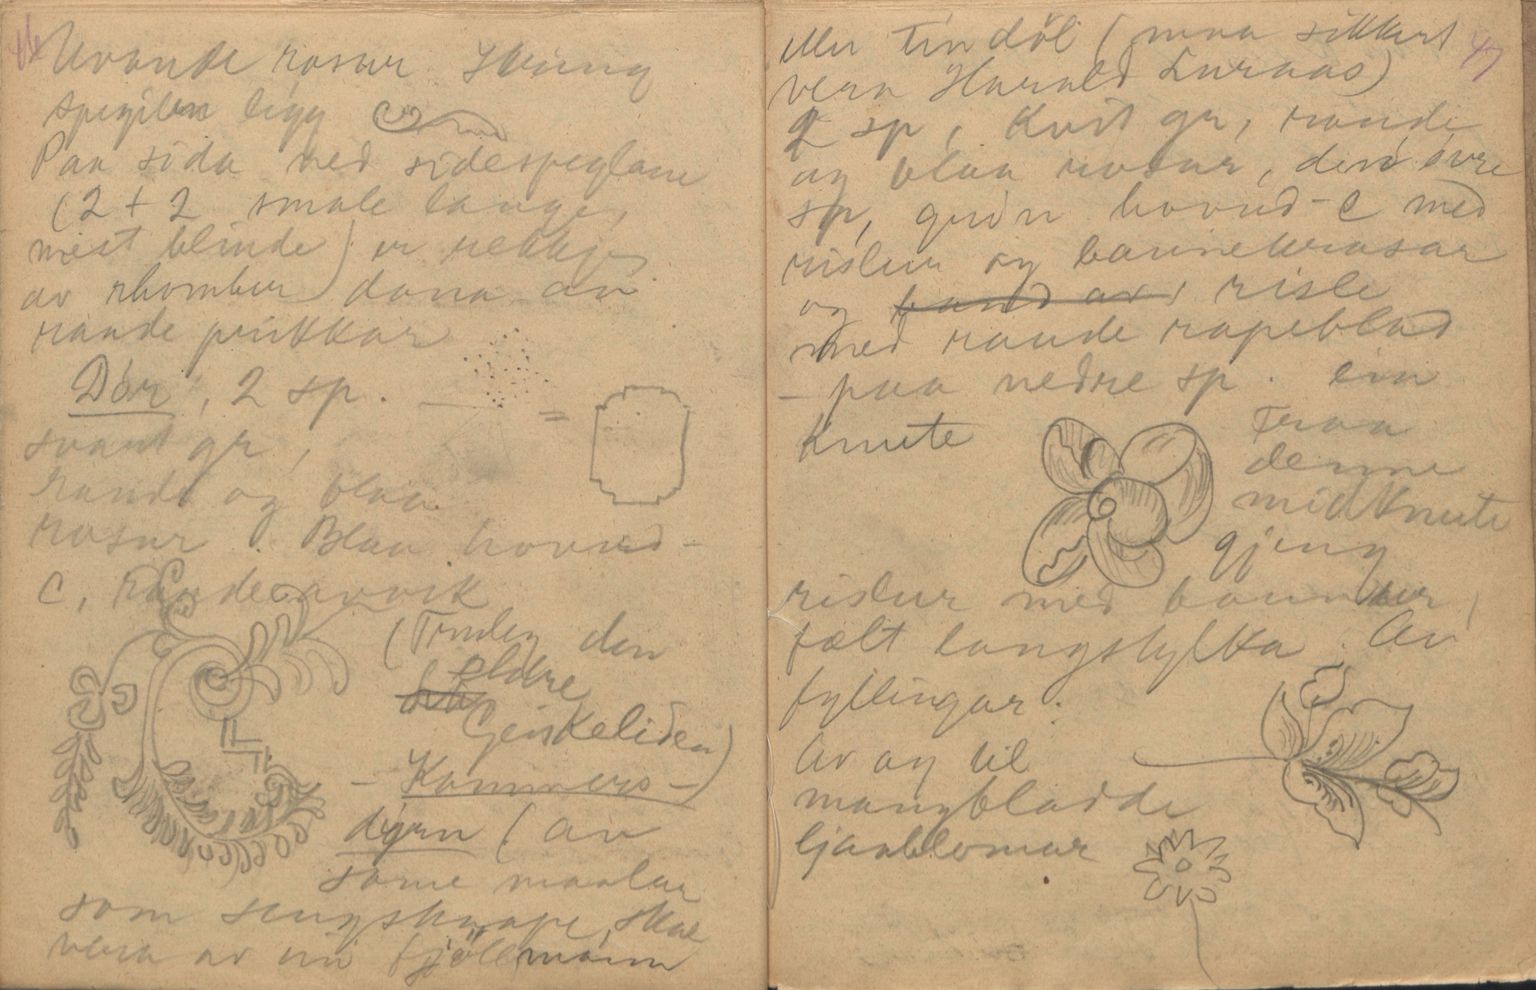 46
raude rosur. Kring
spegilen ligg
Paa sida ved sidespeglane
(2 + 2 smale lange,
mest blinde) er rekkjer
av rhomber dana av
raude prikkar
Dör, 2 sp. =
svart gr,
raude og blaa
rosur. Blaa hovud-
C, raude
(Truleg den
eldre
Geiskeliden)
- Kammers-
dyrn (av
same maalar
som sengskaape, skal
vera av ein fjöllmann
47
eller Tindöl (maa sikkert
vera Harald Luraas)
2 sp, kvit gr, raude
og blaa rosur, den övre
sp, grön hovud-C med
rislur og baunekrosar
og band av risle
med raude rapeblad
- paa nedre sp. ein
knute
Fraa
denne
midknute
gjeng
rislur med baunur,
fælt langstylka. Av
fyllingar.
Av og til
mangbladde
ljasblomur